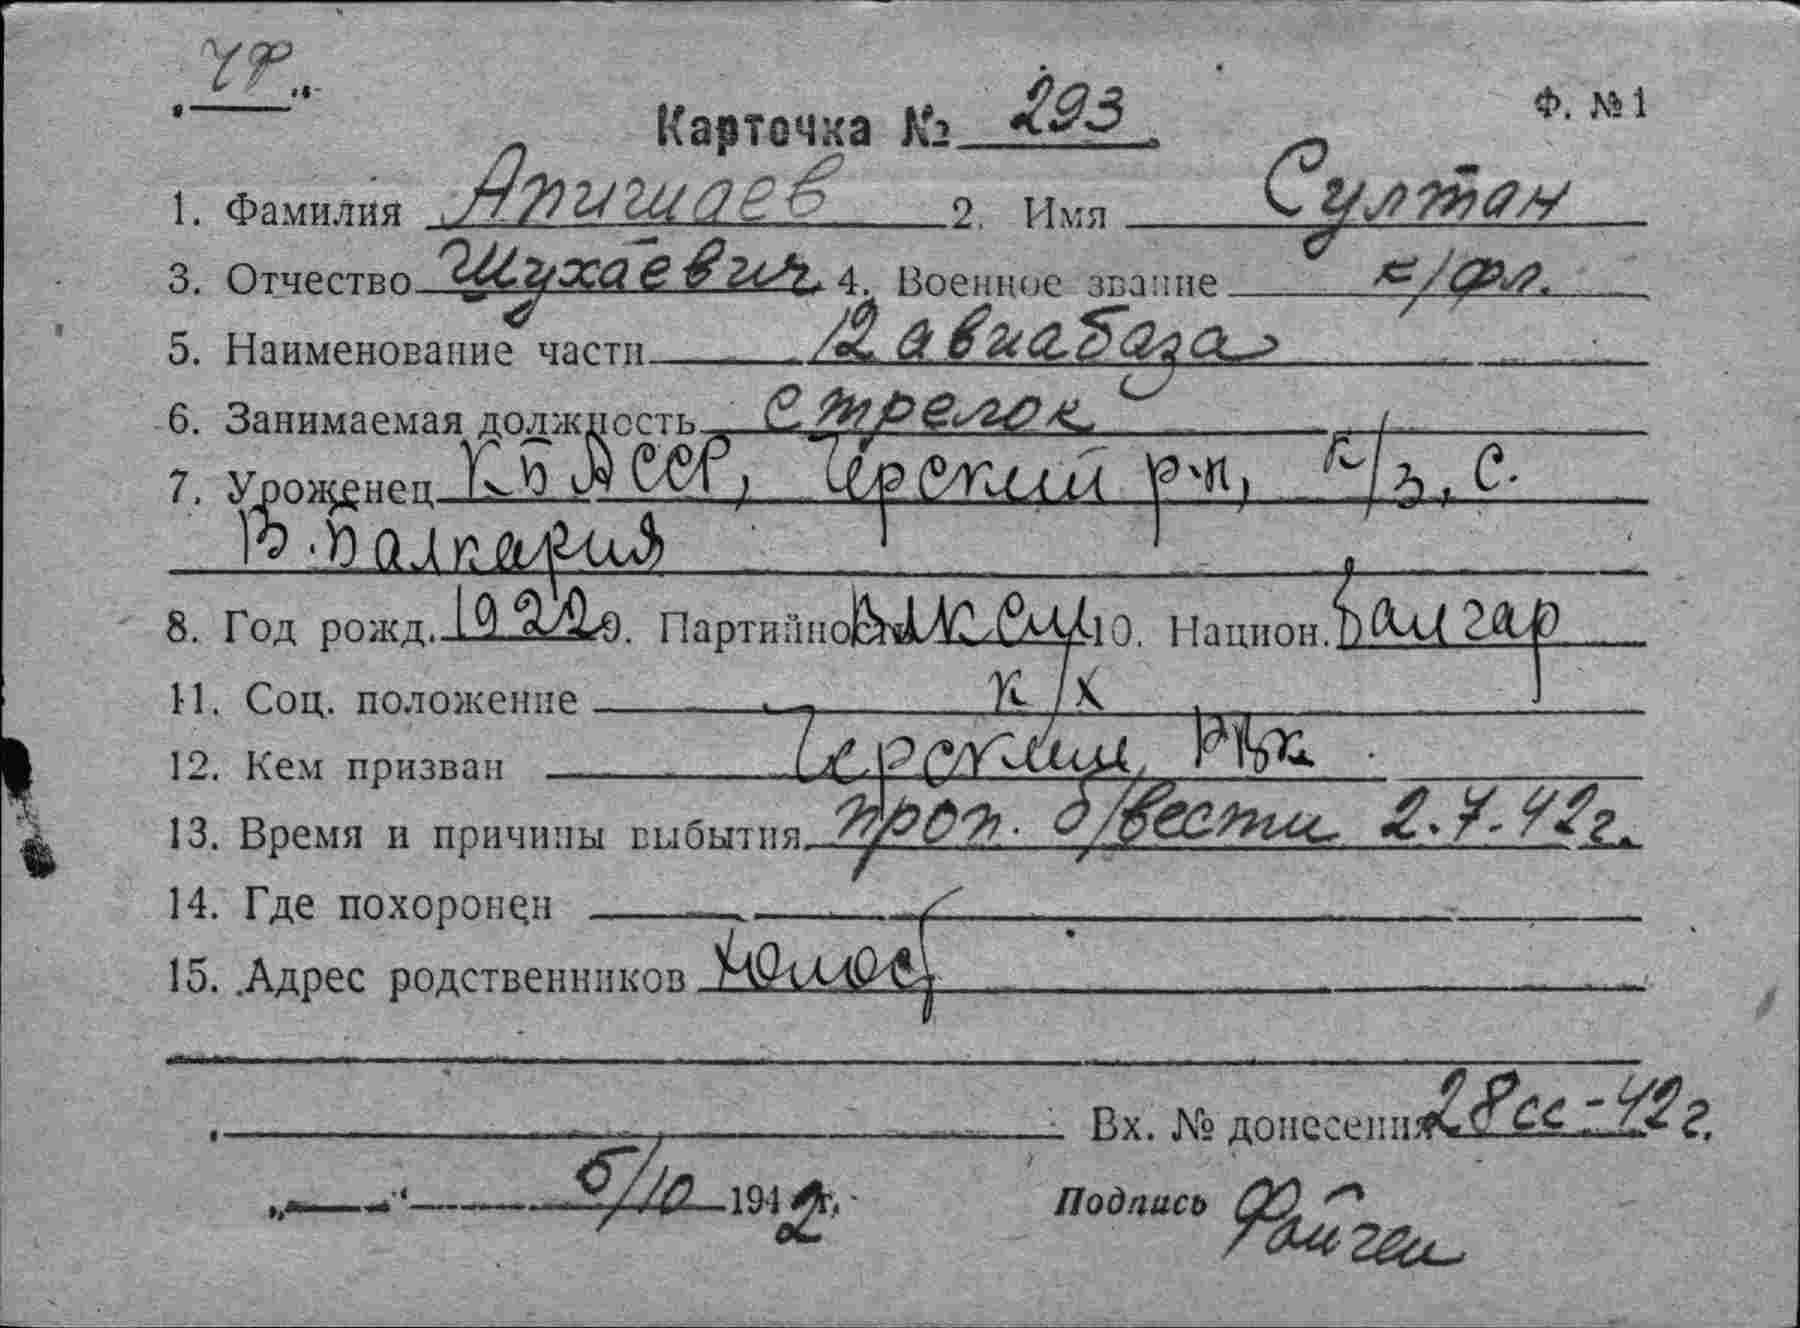 ЧФ
Карточка № 293 Ф. № 1
1. Фамилия Апишаев 2. Имя Султан
3. Отчество Шухаевич 4. Военное звание к/фл.
5. Наименование части 12 авиабаза
6. Занимаемая должность стрелок
7. Уроженец КБАССР, Черский р-н, к/з, с.
В. Балкария
8. Год рожд. 1922 9. Партийность ВЛКСМ 10. Национ. Балгар
11. Соц. положение к/х
12. Кем призван Черским РВК
13. Время и причины выбытия проп. б/вести 2.7.42г.
14. Где похоронен
15. Адрес родственников холост
Вх. № донесения 28сс-42г.
„ “ 5/10 1942 г.
Подпись